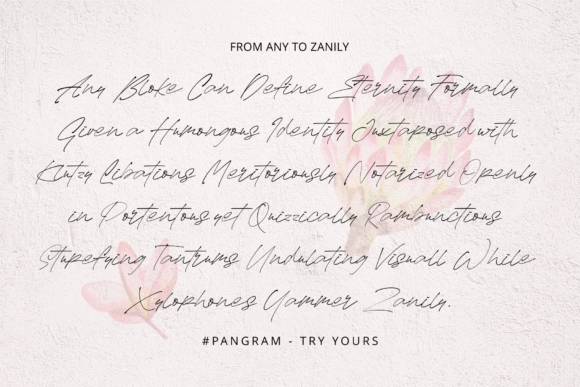 FROM ANY TO ZANILY
Any Bloke Can Define Eternity Formally
Given a Humongous Identity Juxtaposed with
Klutzy Libations Meritoriously Notarized Openly
in Portentous yet Quizzically Rambunctious
Stupefying Tantrums Undulating Visuall While
Xylophones Yammer Zanily.
#PANGRAM - TRY YOURS